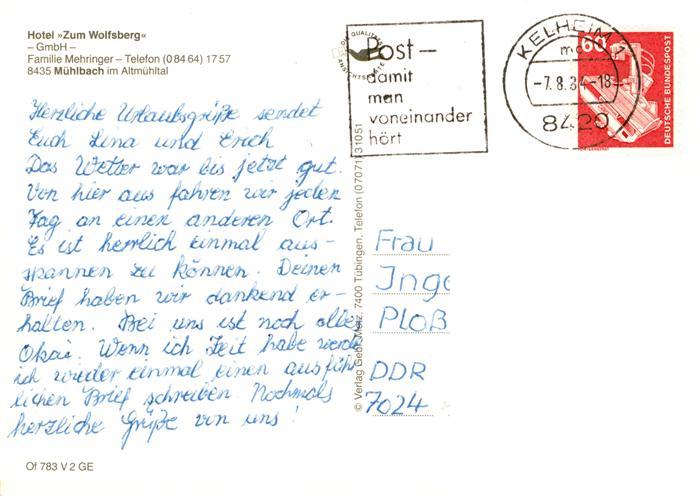 Hotel »Zum Wolfsberg«
– GmbH –
Familie Mehringer – Telefon (0 84 64) 17 57
8435 Mühlbach im Altmühltal
Herzliche Urlaubsgrüße sendet
Euch Lina und Erich
Das Wetter war bis jetzt gut.
Von hier aus fahren wir jeden
Tag an einen anderen Ort.
Es ist herrlich einmal aus-
spannen zu können. Deinen
Brief haben wir dankend er-
halten. Bei uns ist noch alles
Okai. Wenn ich Zeit habe werde
ich wieder einmal einen ausführ
lichen Brief schreiben Nochmals
herzliche Grüße von uns!
Of 783 V 2 GE
© Verlag Gebr. Metz, 7400 Tübingen, Telefon (07071) 31051
DIE QUALITÄTS
ANSICHTSKARTE
Post –
damit
man
voneinander
hört
KELHEIM 1
mc
–7.8.84–18
8420
60
DEUTSCHE BUNDESPOST
Frau
Inge
Ploß
DDR
7024